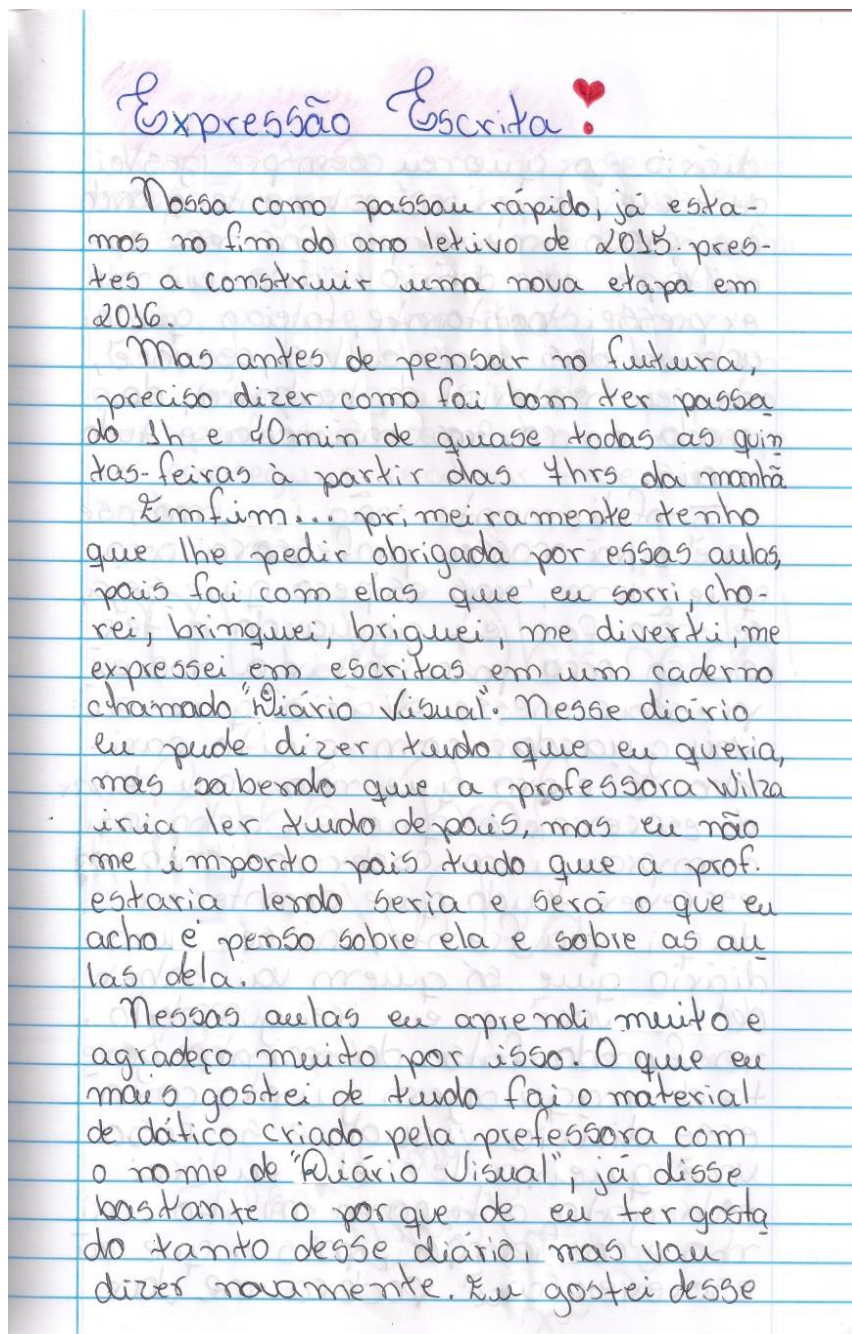 Expressão Escrita!
Nossa como passou rápido, já esta-
mos no fim do ano letivo de 2015. pres-
tes a construir uma nova etapa em
2016.
Mas antes de pensar no futura,
preciso dizer como foi bom ter passa
do 1h e 40min de quase todas as quin
tas-feiras à partir das 7hrs da manhã
Emfim... primeiramente tenho
que lhe pedir obrigada por essas aulas,
pois foi com elas que eu sorri, cho-
rei, brinquei, briguei, me diverti, me
expressei em escritas em um caderno
chamado "Diário Visual". Nesse diário
eu pude dizer tudo que eu queria,
mas sabendo que a professora Wilza
iria ler tudo depois, mas eu não
me importo pois tudo que a prof.
estaria lendo seria e será o que eu
acho e penso sobre ela e sobre as au
las dela.
Nessas aulas eu aprendi muito e
agradeço muito por isso. O que eu
mais gostei de tudo foi o material
de dático criado pela prefessora com
o nome de "Diário Visual", já disse
bastante o por que de eu ter gosta
do tanto desse diário, mas vou
dizer novamente. Eu gostei desse